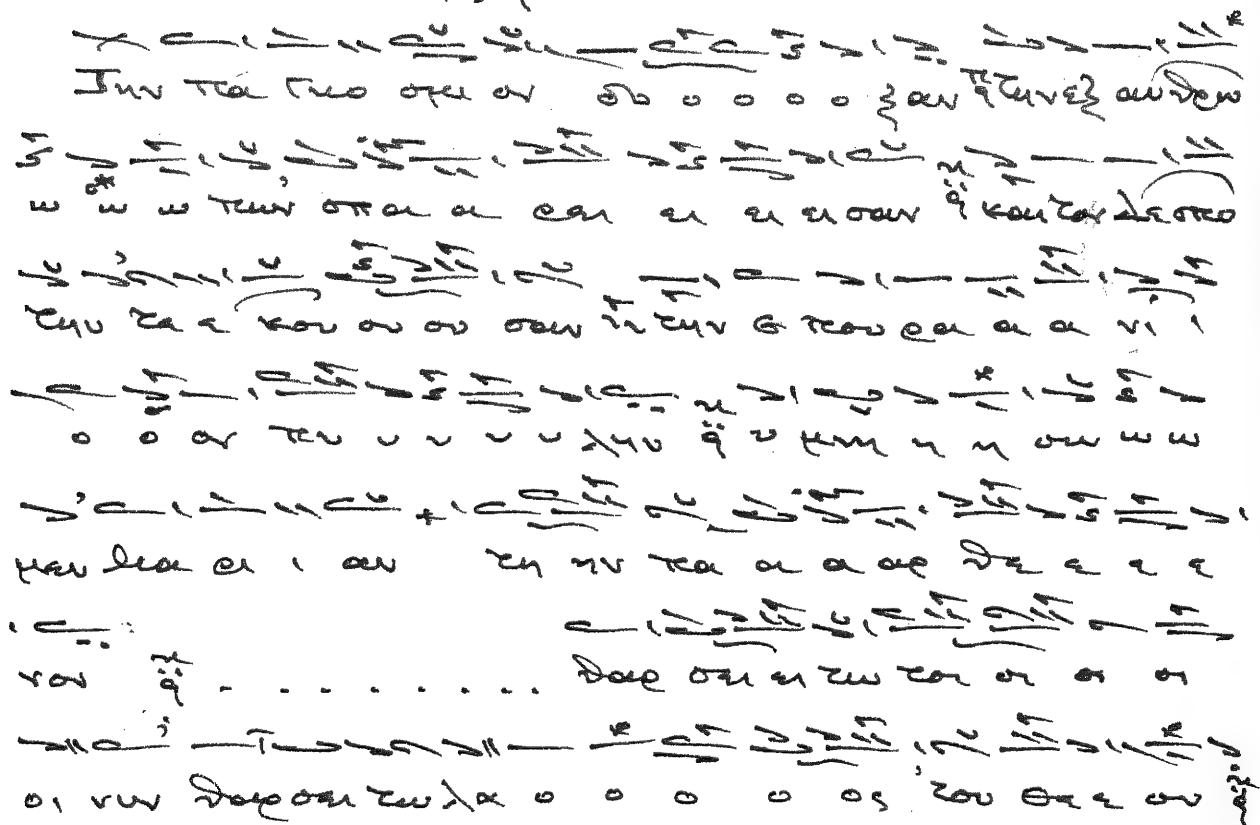 Την πα γκο σμι ον δο ο ο ο ο ξαν την εξ αν θρω
ω ω ω πων σπα α ρει ει ει ει σαν και τον Δε σπο
την τε ε κου ου ου σαν την ε που ρα α α νι ι
ο ο ον πυ υ υ υ υ λην υ μνη η η σω ω ω
μεν Μα ρι ι αν τη ην πα α α αρ θε ε ε ε
νον . . . . . . . . θαρ σει ει τω τοι οι οι οι
οι νυν θαρ σει τω λα ο ο ο ο ος του Θε ε ου